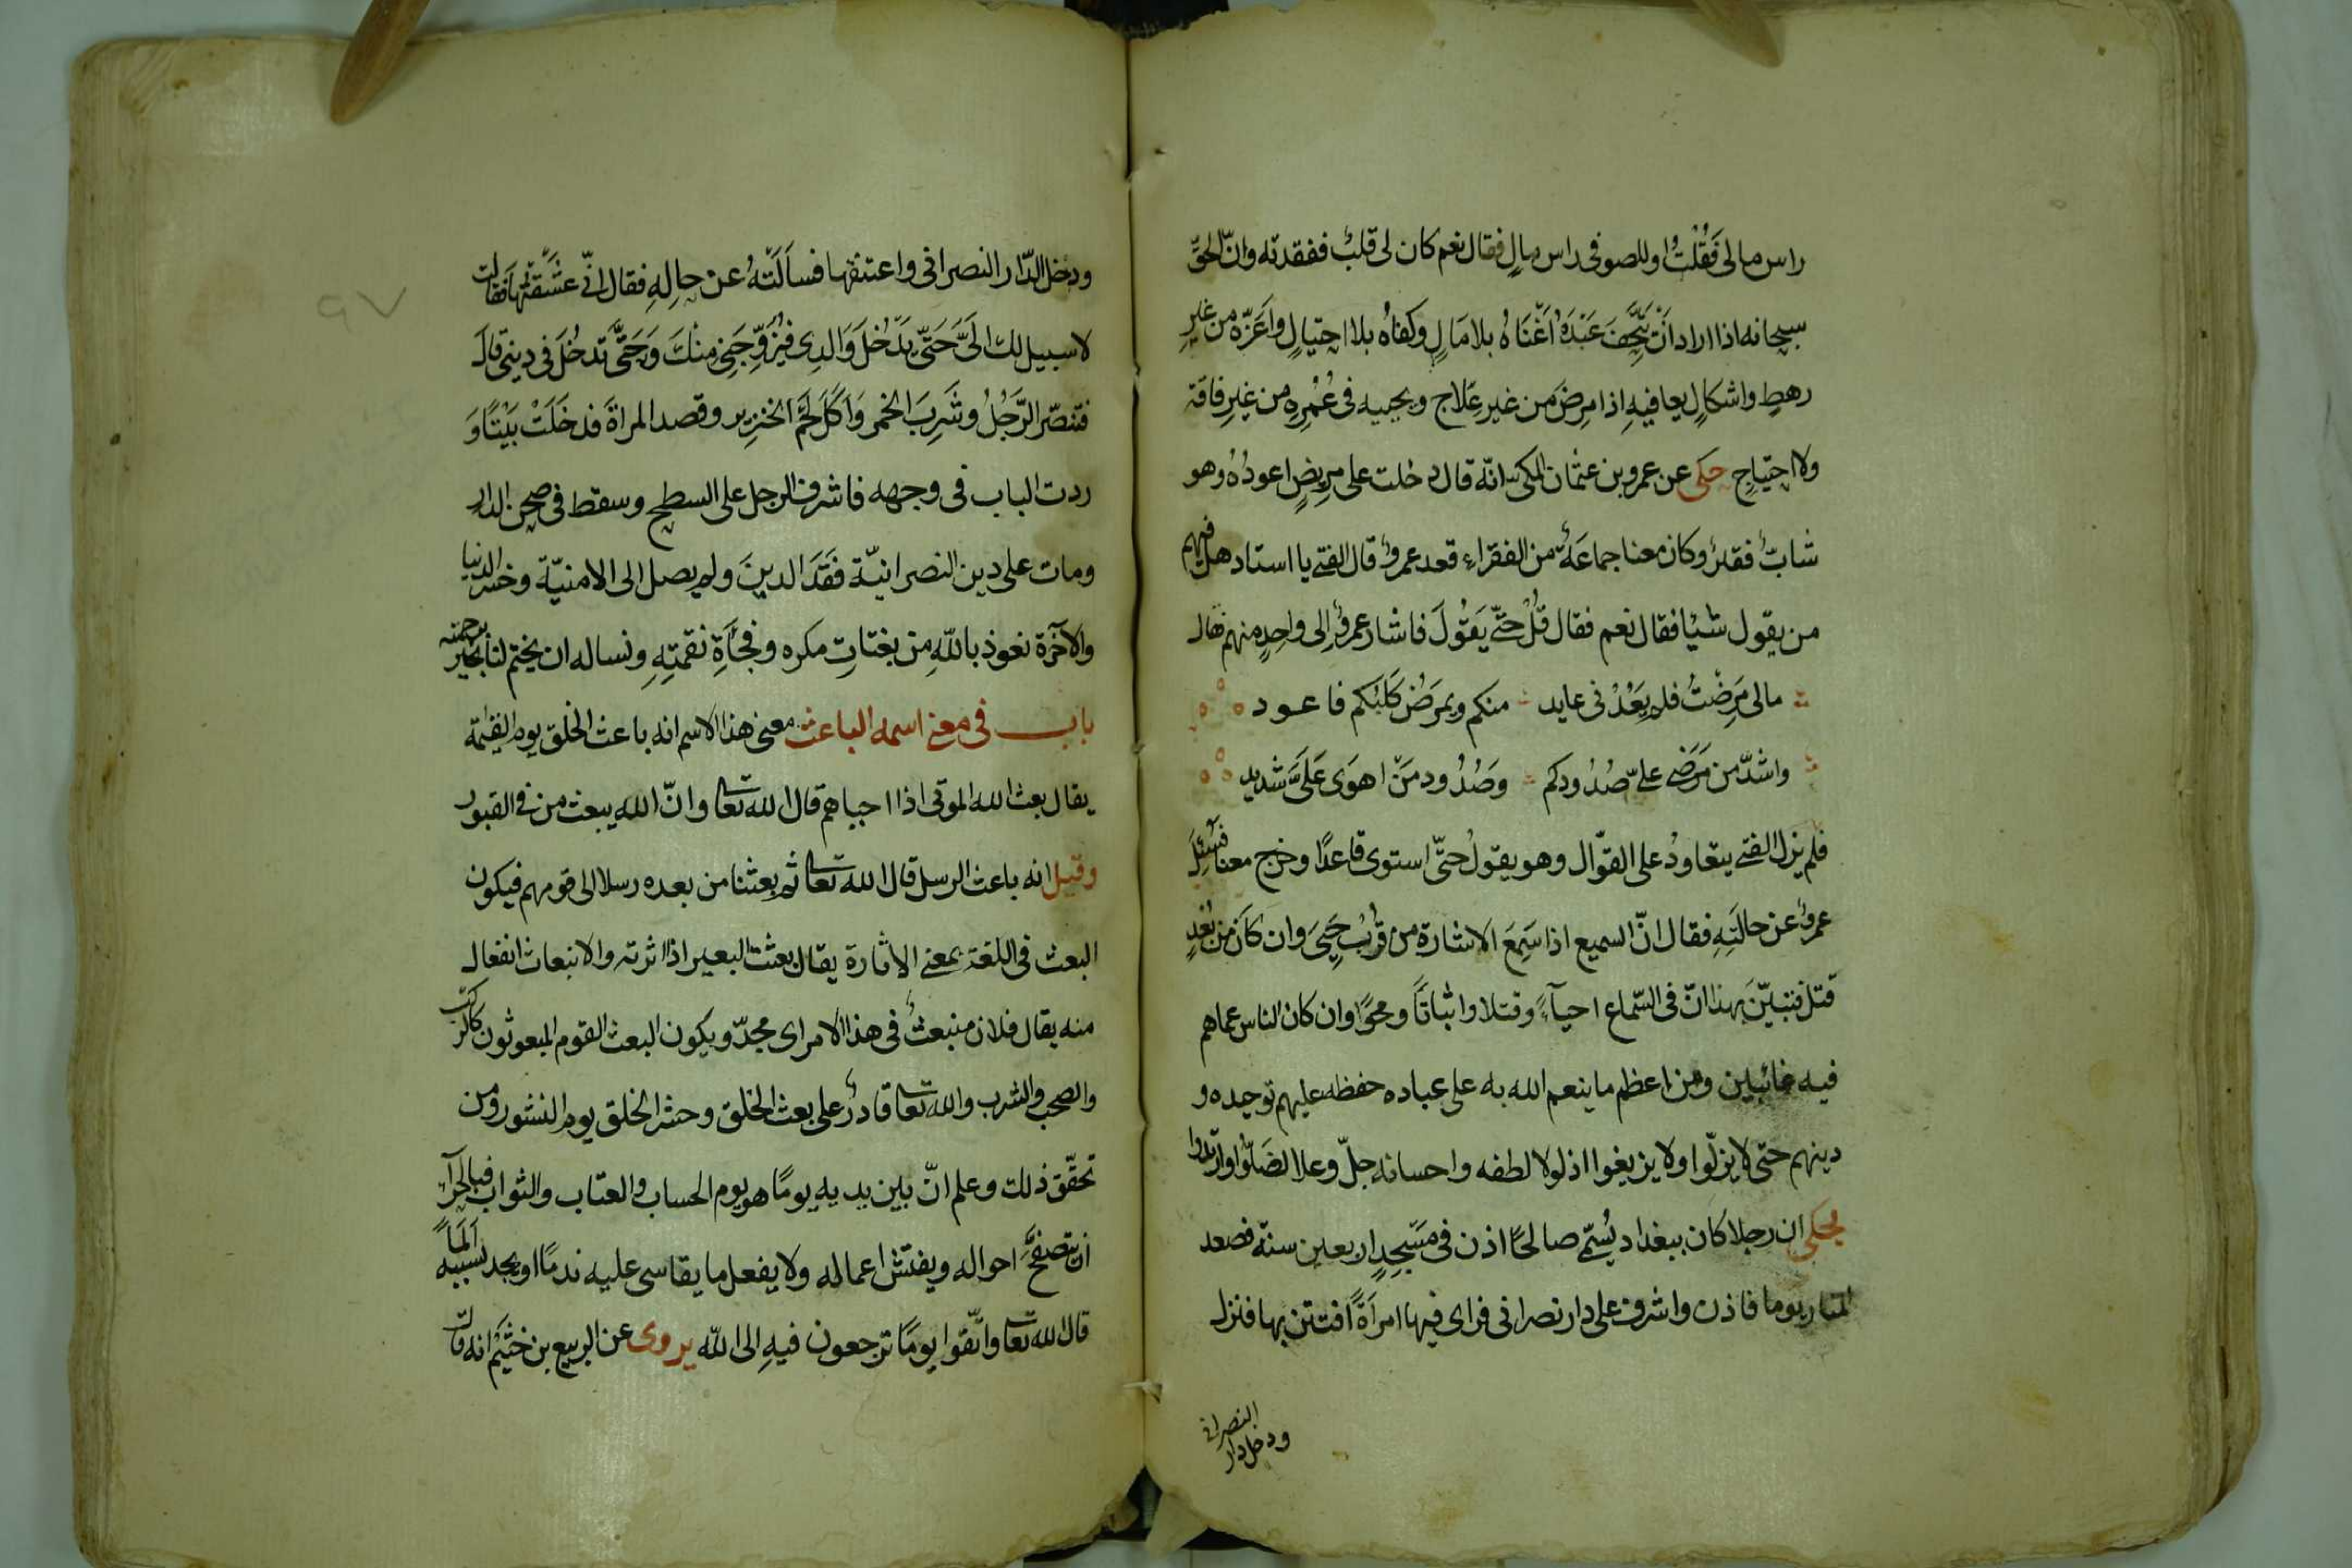 راس مالى فَقُلْتُ اوللصوفى راس مالٍ فقال نعم كان لى قلبٌ ففقدته وانّ الحقّ
سبحانه اذا اراد اَنْ يُتحِفَ عَبْدَهُ اَغْنَاهُ بلا مَالٍ وكفاهُ بلا احتيالٍ واَعَزّه من غيرِ
رهطٍ واشكالٍ يعافيهِ اذا مرِضَ من غير عِلاج ويحييه فى عُمْرِهِ من غيرِ فاقة
ولا احتياجٍ حكى عن عمرو بن عثمان المكى انّه قال دخلت على مريضٍ اعودُهُ وهو
شابٌّ فقيرٌ وكان معنا جماعَةٌ من الفقراءِ فعد عمروٌ قال الفتى يا استاد هل فيهم
من يقول شيْا فقال نعم فقال قُلْ حتّى يَقُولَ فاشار عمروٌ الى واحِدٍ منهم فقال
مالى مَرِضْتُ فلم يَعُدْنى عايد منكم ويمرَضُ كَلبُكم فاعود
واشدّ من مَرَضى علىّ صُدُودكم وصُدُود مَنْ اهوَى عَلَىَّ شديد
فلم يزل الفتى يتعاودُ على القوّال وهو يقولُ حتّى استوى قاعدًا وخرج معنا فسُئِلَ
عمروٌ عن حالَتِهِ فقال انّ السميع اذا سَمِعَ الاشارة من قُربٍ حَيِىَ وان كَانَ من بُعْدٍ
قتل فتبيّنَ بهذا انّ فى السّماع احيآءً وقتلا واثباتًا ومحوًا وان كان الناس عماهم
فيه غائبين ومن اعظم ما ينعم الله به على عباده حفظه عليهم توحيده و
دينهم حتّى لا يزلّوا ولا يزيغوا اذ لولا لطفه واحسانه جلّ وعلا لضَلّوا وارتدوا
يحكى ان رجلا كان ببغداد يُسَمّى صالحًا اذن فى مَسْجِدٍ اربعين سنة فصعد
المنار يوما فاذن واشرف على دار نصرانى فراى فيها امرَاَةً افتتن بها فنزل
ودخل دار النصرانى
ودخل الدّار النصرانى واعتنقها فساَلَتْهُ عن حالِهِ فقال انّى عَشَقْتُهَا فقالت
لا سبيل لك الَىَّ حَتّى يَدْخُلَ وَالدِى فَيُزَوِّجَنى مِنْكَ وَحَتَّى تدخُلَ فى دينى قال
فتنصّر الرَّجُلُ وشَرِبَ الخمر وَاَكَلَ لَحْمَ الخنزير وقصد المراة فدخَلَتْ بَيْتًا وَ
ردت الباب فى وجهه فاشرف الرجل على السطح وسقط فى صحن الدار
ومات على دين النصرانيّة فَقَدَ الدينَ ولم يصل الى الامنيّة وخسر الدنيا
والآخرة نعوذ باللّه من بغتاتِ مكره وفَجْأَةِ نقمتِهِ ونساله ان يختم لنا بخير برحمته
باب فى معنى اسمه الباعث معنى هذا الاسم انه باعث الخلق يوم القيٰمة
يقال بعث الله الموتى اذا احياهم قال الله تعا وانّ الله يبعث من فى القبور
وقيل انه باعث الرسل قال الله تعا ثم بعثنا من بعده رسلا الى قومهم فيكون
البعث فى اللغة بمعنى الاثارة يقال بعثت البعير اذا اثرته والانبعاث انفعال
منه يقال فلان منبعثٌ فى هذا الامر اى مجدّ ويكون البعث القوم المبعوثون كالركب
والصحب والشرب والله تعا قادرٌ على بعث الخلق وحشر الخلق يوم النشور ومن
تحقّق ذلك وعلم انّ بين يديه يومًا هو يوم الحساب والعتاب والثواب فبالحرآ
ان يتصفحَّ احواله ويفتش اعماله ولا يفعل ما يقاسى عليه ندمًا او يجد بسببه اَلَمًا
قال الله تعا واتّقوا يومًا ترجعون فيهِ الى اللّه يروى عن الربيع بن خثيم انه قال